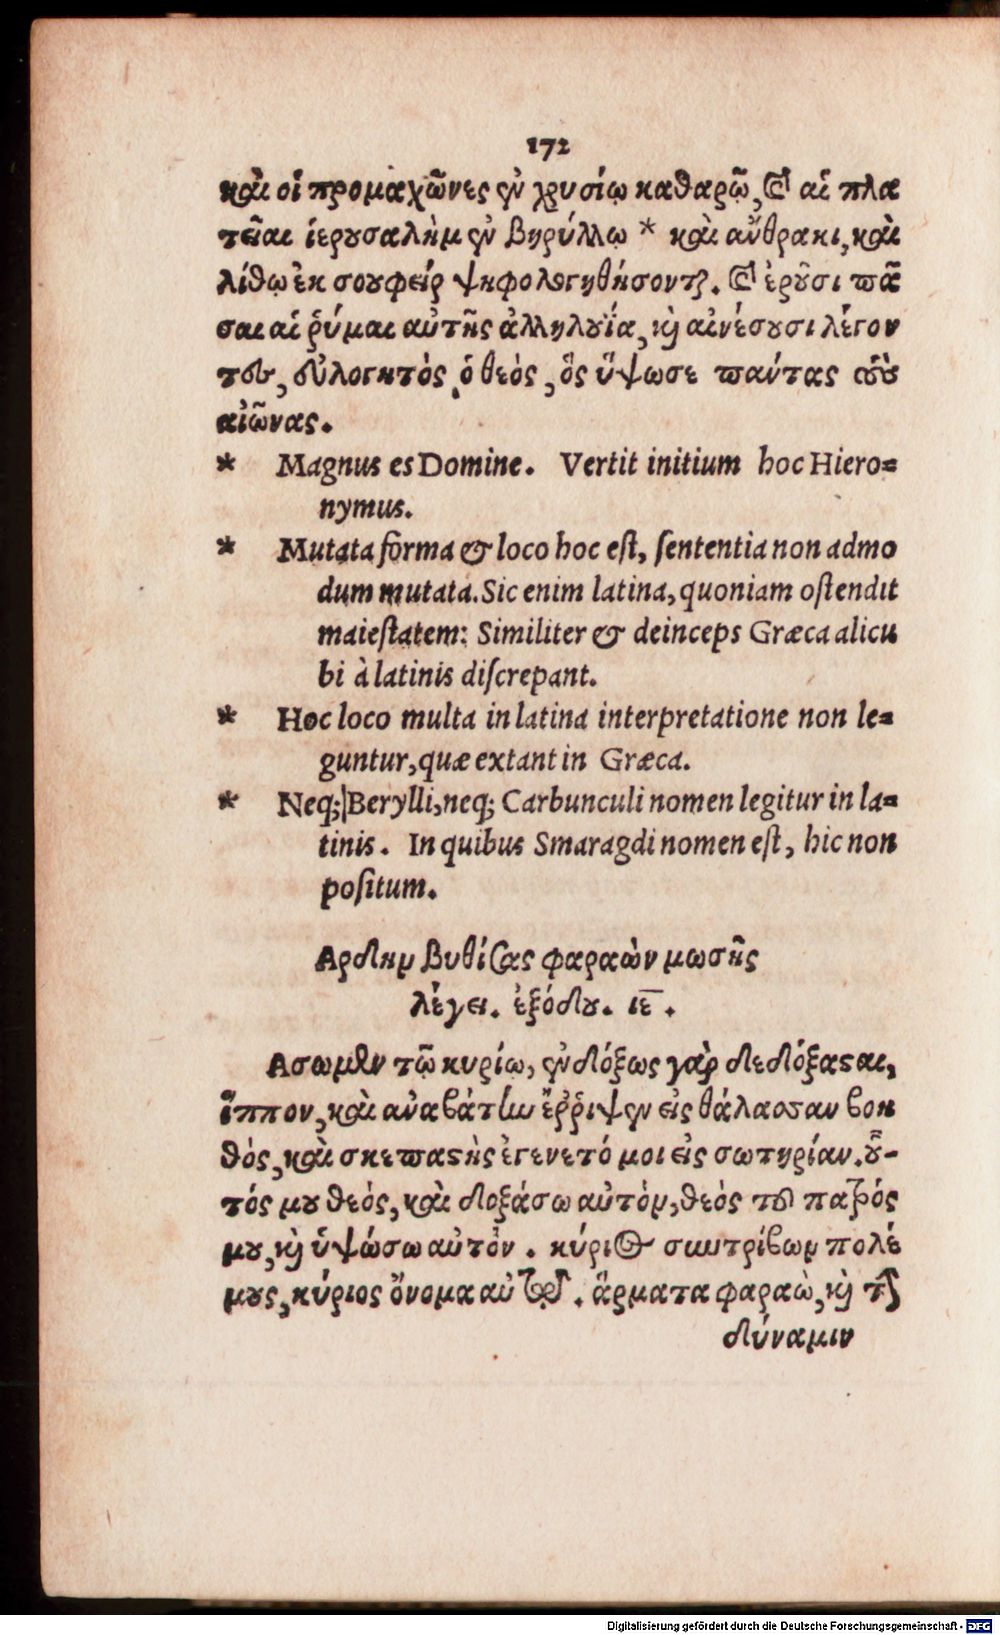 172
καὶ οἱ προμαχῶνες ἐν χρυσίῳ καθαρῷ, καὶ αἱ πλα
τεῖαι ἱερουσαλὴμ ἐν βηρύλλῳ * καὶ ἄνθρακι, καὶ
λίθῳ ἐκ σουφεὶρ ψηφολογηθήσονται. καὶ ἐροῦσι πᾶ
σαι αἱ ῥύμαι αὐτῆς ἀλληλουΐα, καὶ αἰνέσουσι λέγον
τες, εὐλογητὸς ὁ θεὸς, ὃς ὕψωσε πάντας τοὺς
αἰῶνας.
* Magnus es Domine. Vertit initium hoc Hiero=
nymus.
* Mutata forma & loco hoc eſt, ſententia non admo
dum mutata. Sic enim latina, quoniam oſtendit
maieſtatem: Similiter & deinceps Græca alicu
bi à latinis diſcrepant.
* Hoc loco multa in latina interpretatione non le=
guntur, quæ extant in Græca.
* Neq; Berylli, neq; Carbunculi nomen legitur in la=
tinis. In quibus Smaragdi nomen eſt, hic non
poſitum.
Αρδην βυθίσας φαραὼν μωσῆς
λέγει. ἐξόδου. ιε.
Ασωμεν τῷ κυρίῳ, ἐνδόξως γὰρ δεδόξασαι,
ἵππον, καὶ ἀναβάτην ἔῤῥιψεν εἰς θάλασσαν βοη
θὸς, καὶ σκεπαστὴς ἐγένετό μοι εἰς σωτηρίαν. οὗ-
τός μου θεὸς, καὶ δοξάσω αὐτὸν, θεὸς τοῦ πατρός
μου, καὶ ὑψώσω αὐτὸν. κύριος συντρίβων πολέ
μους, κύριος ὄνομα αὐτῷ. ἅρματα φαραὼ, καὶ τὴν
δύναμιν
Digitalisierung gefördert durch die Deutsche Forschungsgemeinschaft - DFG